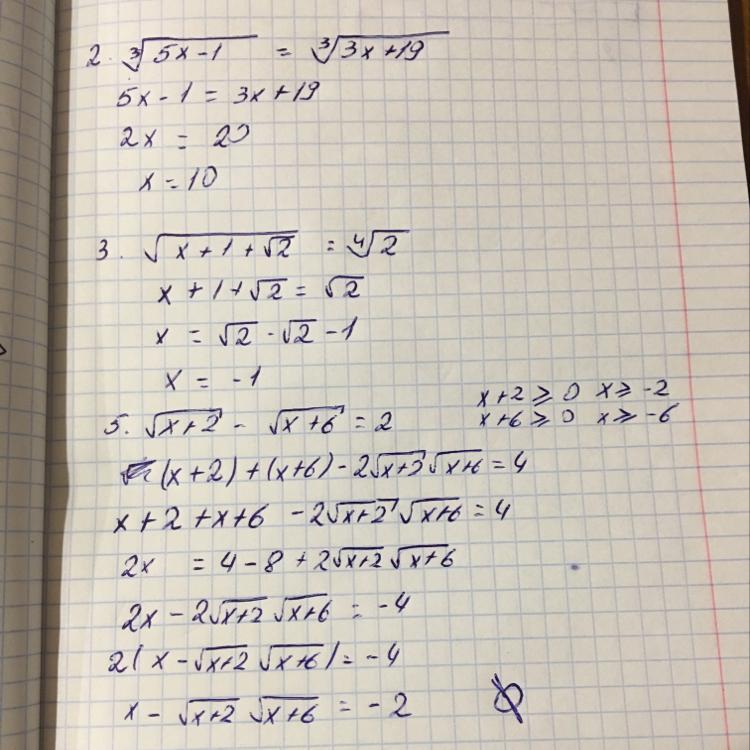 2. ∛(5x-1) = ∛(3x+19)
5x-1 = 3x+19
2x = 20
x = 10
3. √(x+1+√2) = ∜2
x+1+√2 = √2
x = √2 - √2 - 1
x = -1
x+2 ≥ 0 x ≥ -2
x+6 ≥ 0 x ≥ -6
5. √(x+2) - √(x+6) = 2
(x+2)+(x+6) - 2√(x+2) √(x+6) = 4
x+2+x+6 - 2√(x+2) √(x+6) = 4
2x = 4-8+2√(x+2) √(x+6)
2x - 2√(x+2) √(x+6) = -4
2(x - √(x+2) √(x+6)) = -4
x - √(x+2) √(x+6) = -2 ∅